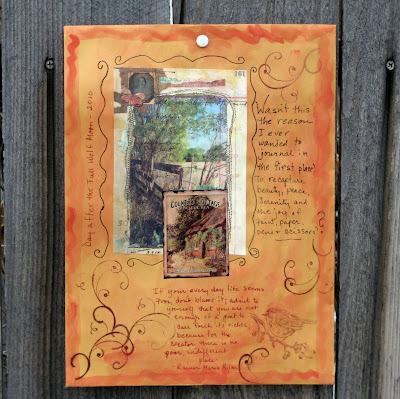 161
Day after the Full Wolf Moon - 2010
Wasn't this
the reason
I ever
wanted to
journal in
the first place?
To recapture
beauty, peace,
serenity and
the joy of
paint, paper,
pens & scissors!
COUNTRY COTTAGE
If your every day life seems
poor, don't blame it; admit to
yourself that you are not
enough of a poet to
call forth its riches;
because for the
creator there is no
poor, indifferent
place.
Rainer Maria Rilke